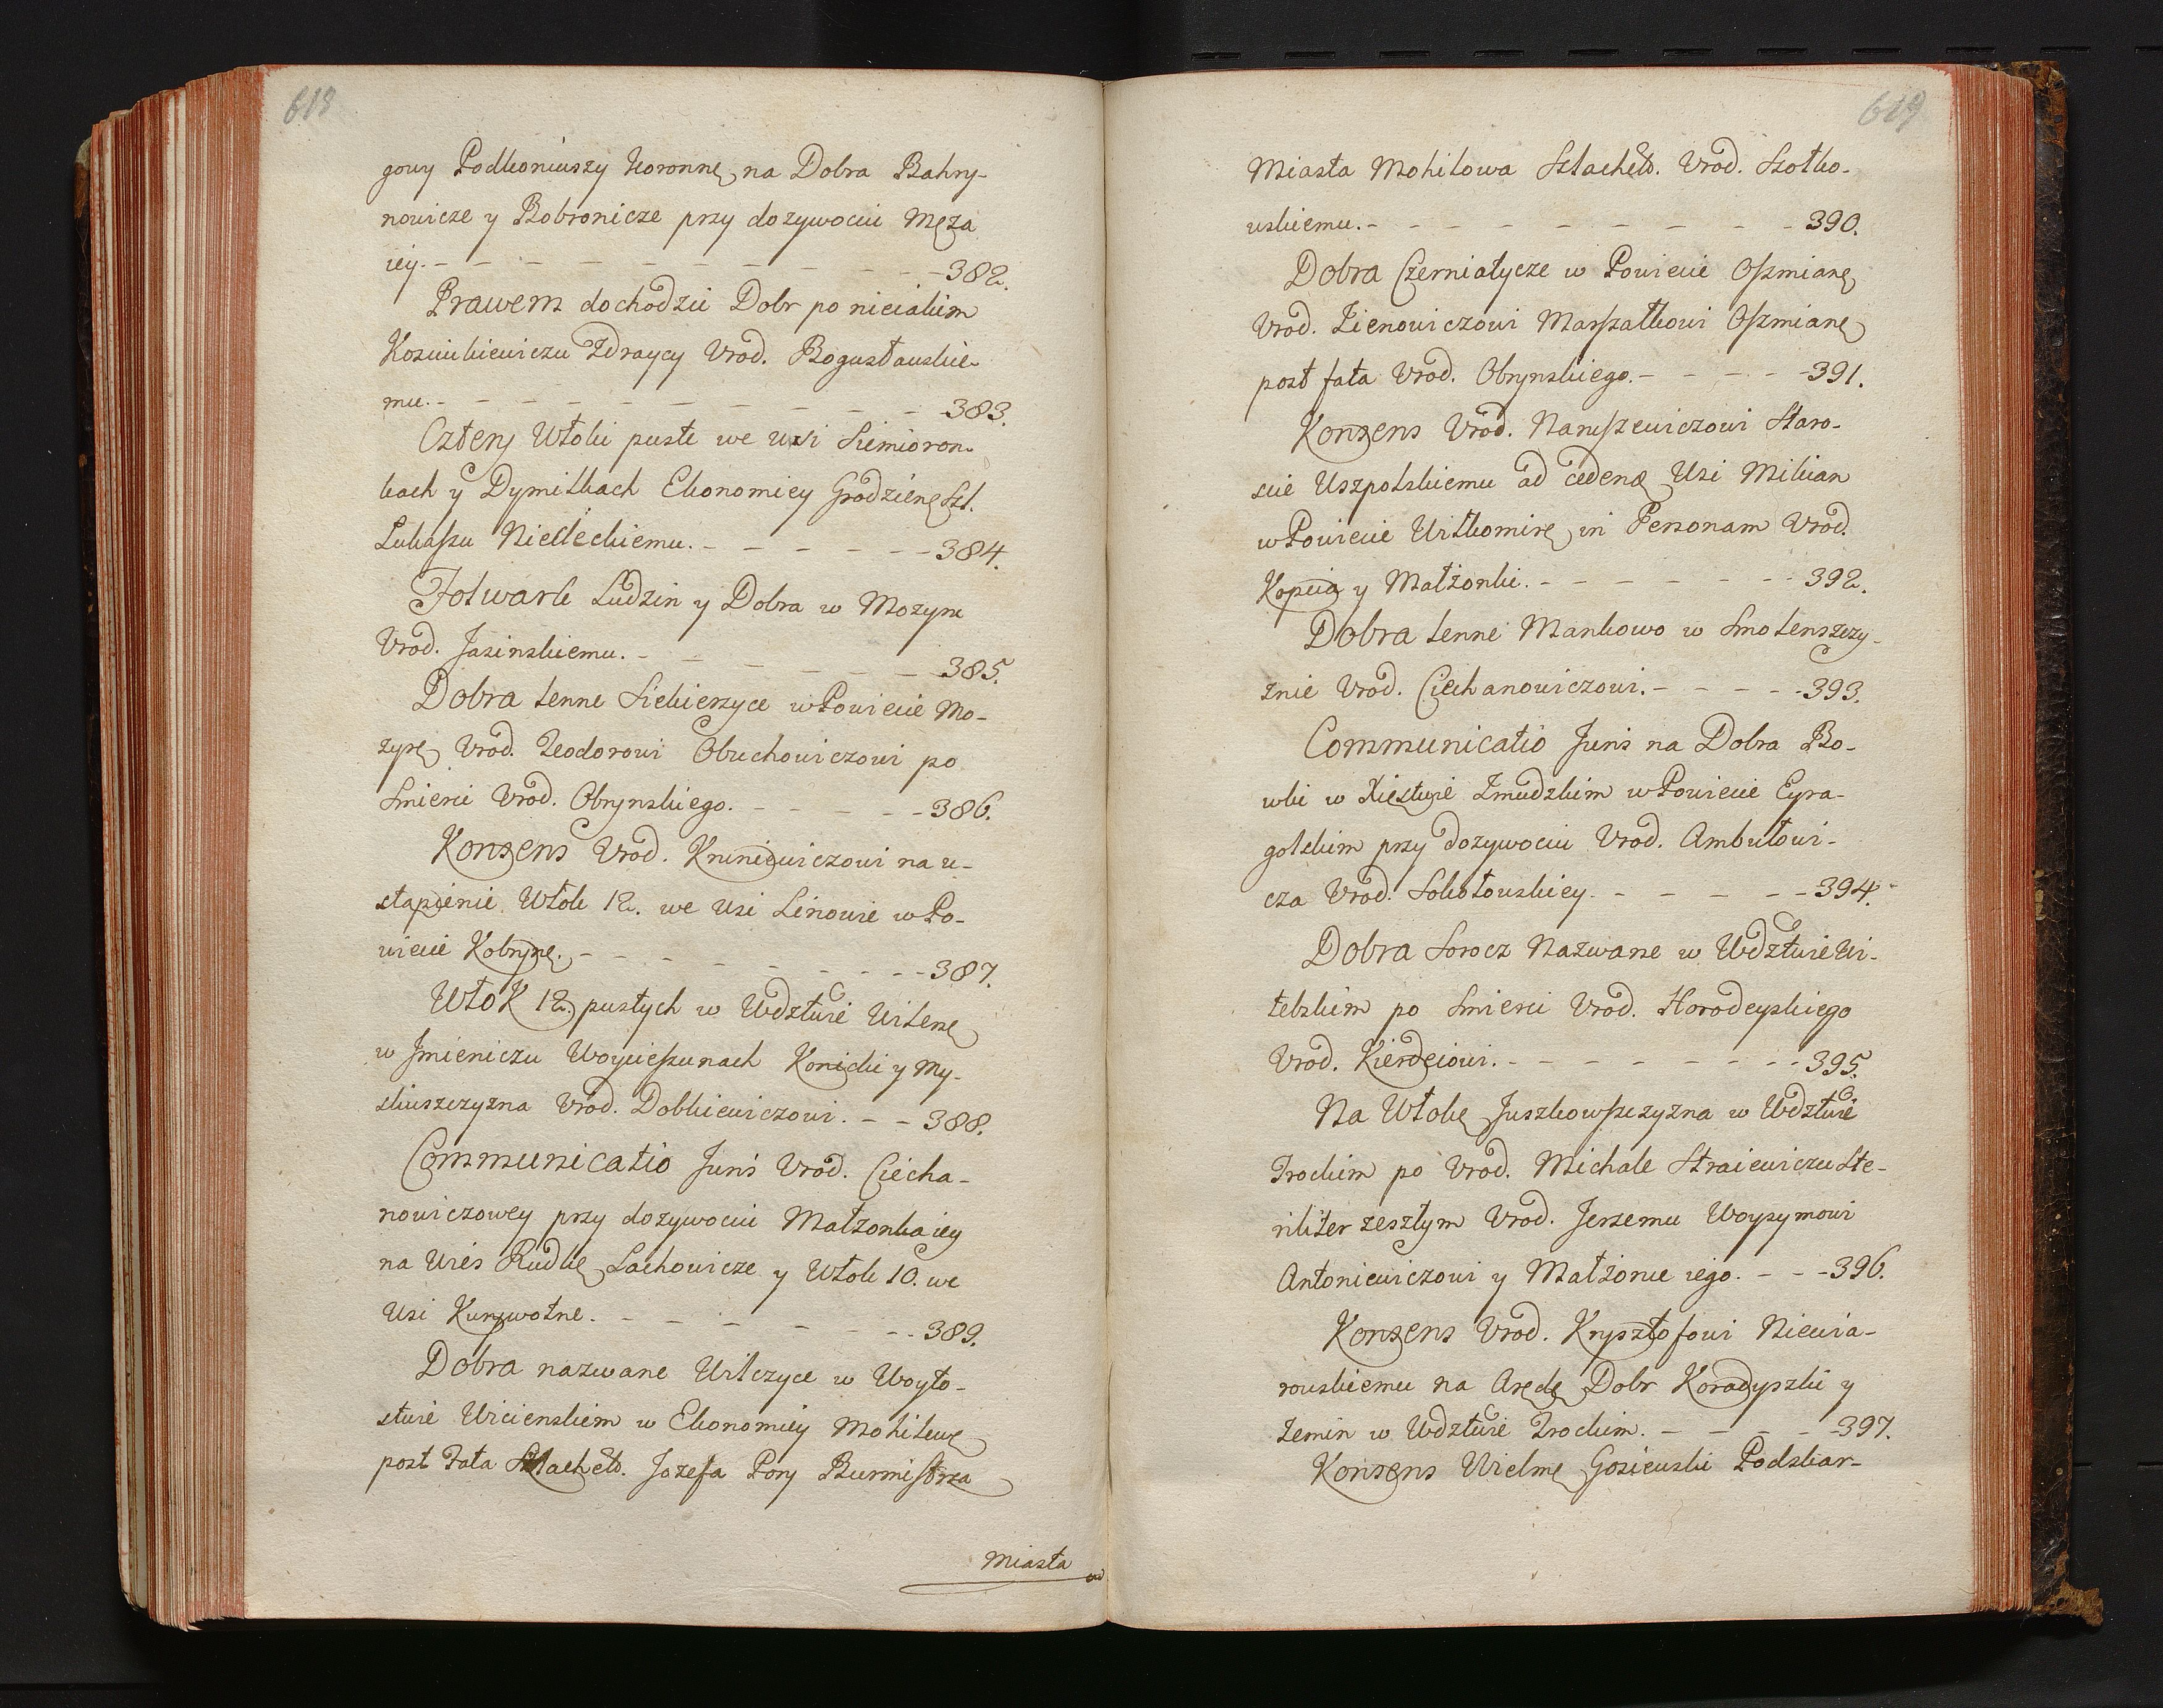 618
gowy Podkoniuszy Koronne, na Dobra Bahry-
nowicze y Bobronicze przy dozywociu Męza
iey. - - - - - - - - - - 382.
Prawem dochodzić Dobr po nieiakim
Kosciukiewiczu Zdraycy Vrod. Bogusławskie-
mu. - - - - - - - - - - 383.
Cztery Włoki puste we wsi Siemioron-
kach y Dymitkach Ekonomiey Grodziene Szl.
Łukaszu Niedeckiemu. - - - - - - 384.
Folwark Ludzin y Dobra w Mozyrs
Vrod. Jasinskiemu. - - - - - - 385.
Dobra lenne Siekierzyce w Powiecie Mo-
zyrs Vrod. Teodorowi Obuchowiczowi po
Smierci Vrod. Obrynskiego. - - - - 386.
Konsens Vrod. Kruniewiczowi na u-
stąpienie Włok 12. we wsi Linowie w Po-
wiecie Kobryne. - - - - - - - - 387.
Włok 12. pustych w Wdztwie Wilens
w Jmieniczu Woycieszunach Konicki y My-
skuszczyzna Vrod. Dobkiewiczowi. - - 388.
Communicatio Juris Vrod. Ciecha-
nowiczowey przy dozywociu Małzonka iey
na Wies Rudkę Lachowicze y Włok 10. we
Wsi Kurzwotne. - - - - - - 389.
Dobra nazwane Wilczyce w Woyto-
stwie Wicienskim w Ekonomiey Mohilews
post Fata Szlachetd. Jozefa Pory Burmistrza
Miasta
619
Miasta Mohilowa Szlachetd. Vrod. Szotko-
wskiemu. - - - - - - - - - 390.
Dobra Czerniatycze w Powiecie Oszmians
Vrod. Zienowiczowi Marszałkowi Oszmians
post fata Vrod. Obrynskiego. - - - - 391.
Konsens Vrod. Naruszewiczowi Staro-
scie Uszpolskiemu ad cedend Wsi Mikian
w Powiecie Wiłkomirs in Personam Vrod.
Kopcia y Małżonki. - - - - - - 392.
Dobra lenne Mankowo w Smolenszczy-
znie Vrod. Ciechanowiczowi. - - - - 393.
Communicatio Juris na Dobra Bo-
wki w Xięstwie Zmudzkim w Powiecie Eyra-
golskim przy dozywociu Vrod. Ambutowi-
cza Vrod. Sokołowskiey. - - - - - 394.
Dobra Sorocz Nazwane w Wdztwie Wi-
tebskim po Smierci Vrod. Horodeyskiego
Vrod. Kierdeiowi. - - - - - - - 395.
Na Włokę Juszkowszczyzna w Wdztwie
Trockim po Vrod. Michale Straiewiczu Ste-
riliter zeszłym Vrod. Jerzemu Woysymowi
Antoniewiczowi y Małżonce iego. - - - 396.
Konsens Vrod. Krysztofowi Niewia-
rowskiemu na Arędę Dobr Koradyszki y
Zemin w Wdztwie Trockim. - - - - 397.
Konsens Wielme Gosiewski Podskar-